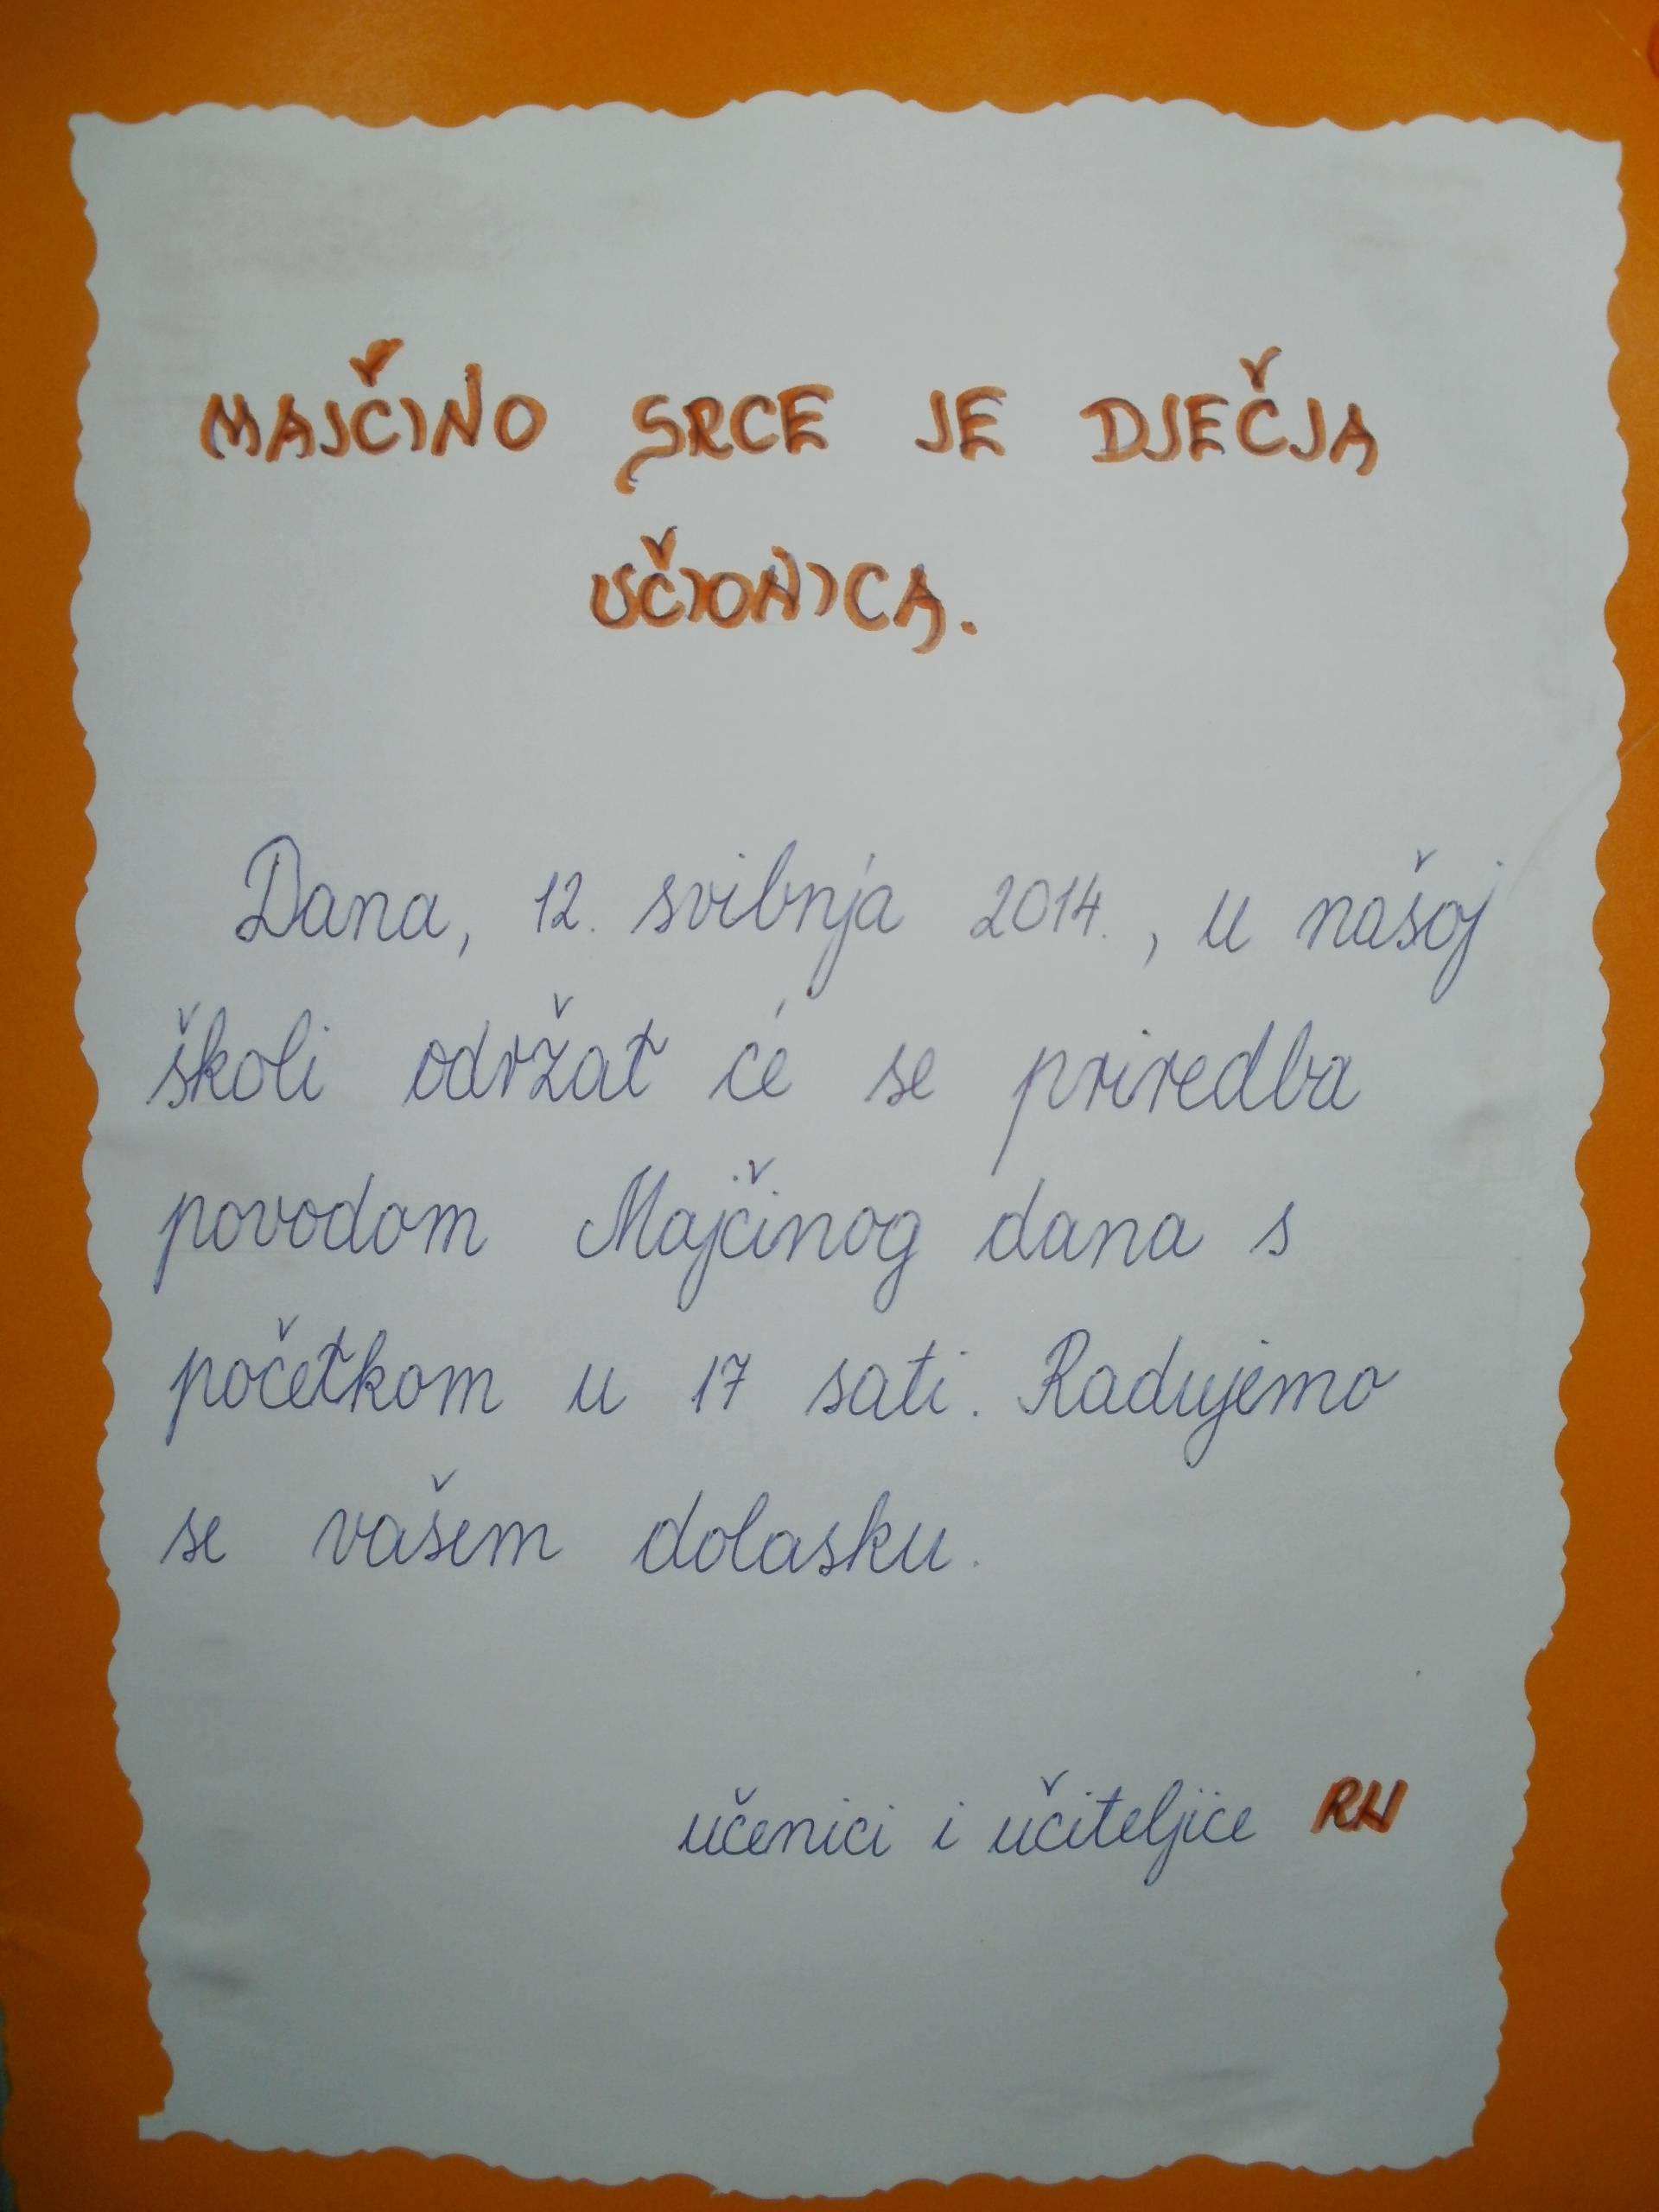 MAJČINO SRCE JE DJEČJA
UČIONICA.
Dana, 12. svibnja 2014., u našoj
školi održat će se priredba
povodom Majčinog dana s
početkom u 17 sati. Radujemo
se vašem dolasku.
učenici i učiteljice RN